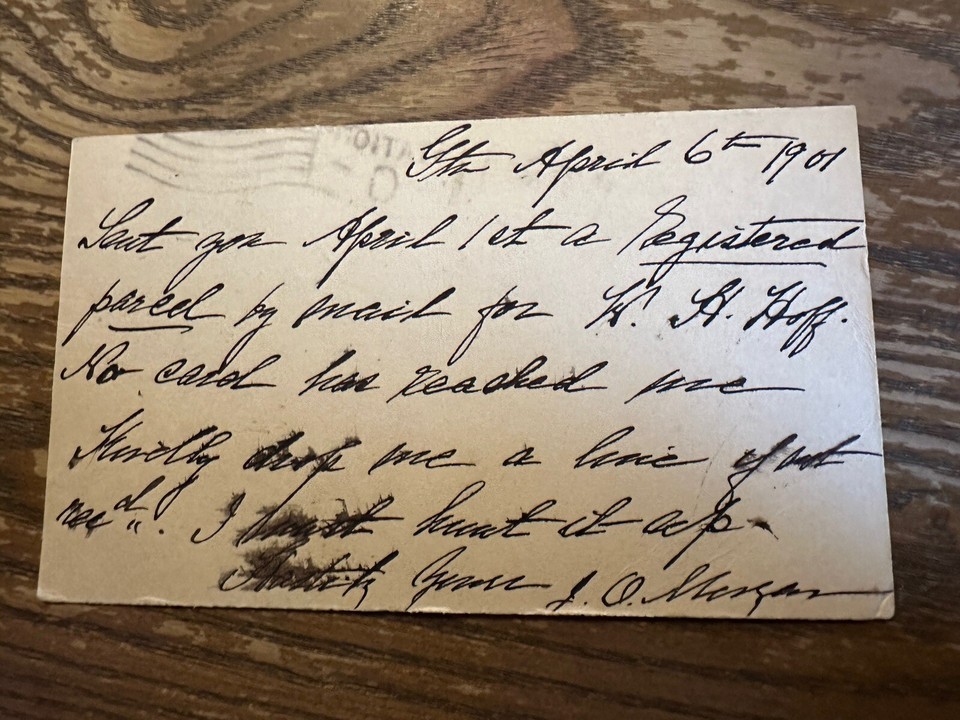 April 6th 1901
Sent you April 1st a Registered
parcel by mail for W. H. Hoff.
No card has reached me
Kindly drop me a line if not
rec'd. I must hunt it up.
Yours J. O. Morgan